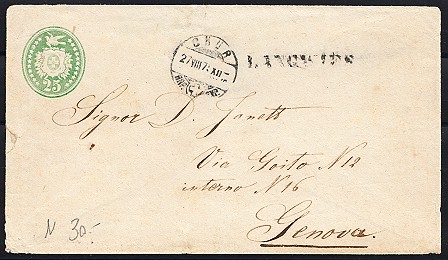 25
CHUR
LANGWIES
Signor D. Janett
Via Goito N 12
interno N 16
Genova.
N 30.-